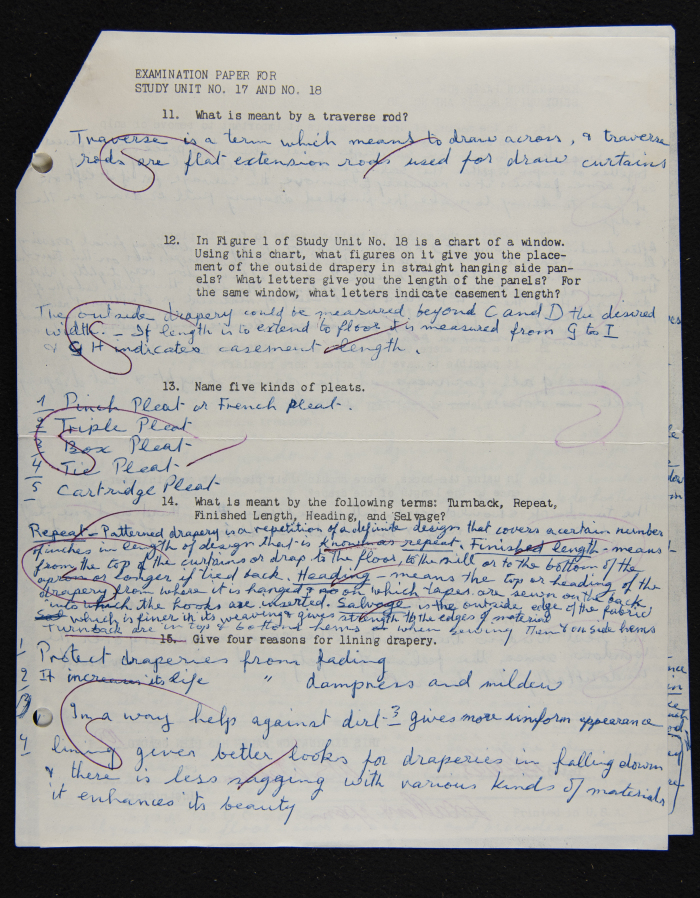 EXAMINATION PAPER FOR
STUDY UNIT NO. 17 AND NO. 18
11. What is meant by a traverse rod?
Traverse is a term which means to draw across, & traverse
rods are flat extension rods used for draw curtains
12. In Figure 1 of Study Unit No. 18 is a chart of a window.
Using this chart, what figures on it give you the place-
ment of the outside drapery in straight hanging side pan-
els? What letters give you the length of the panels? For
the same window, what letters indicate casement length?
The outside drapery could be measured beyond C and D the desired
width. - If length is to extend to floor it is measured from G to I
& G H indicates casement length.
13. Name five kinds of pleats.
1 Pinch Pleat or French pleat.
2 Triple Pleat
3 Box Pleat
4 Tie Pleat
5 Cartridge Pleat
14. What is meant by the following terms: Turnback, Repeat,
Finished Length, Heading, and Selvage?
Repeat - Patterned drapery is a repetition of a definite design that covers a certain number
of inches in length of design that is known as repeat. Finished length - means
from the top of the curtains or drap to the floor, to the sill or to the bottom of the
apron or longer if tied back. Heading - means the top or heading of the
drapery from where it is hanged & on which tapes are sewn on the back
into which the hooks are inserted. Salvage is the outside edge of the fabric
which is finer in its weaving & gives strength to the edges of material
Turnback are in top & bottom hems or when sewing them & on side hems
15. Give four reasons for lining drapery.
1 Protect draperies from fading
2 It increases its life " dampness and mildew
In a way helps against dirt - 3 gives more uniform appearance
4 lining gives better looks for draperies in falling down
& there is less sagging with various kinds of materials
it enhances its beauty